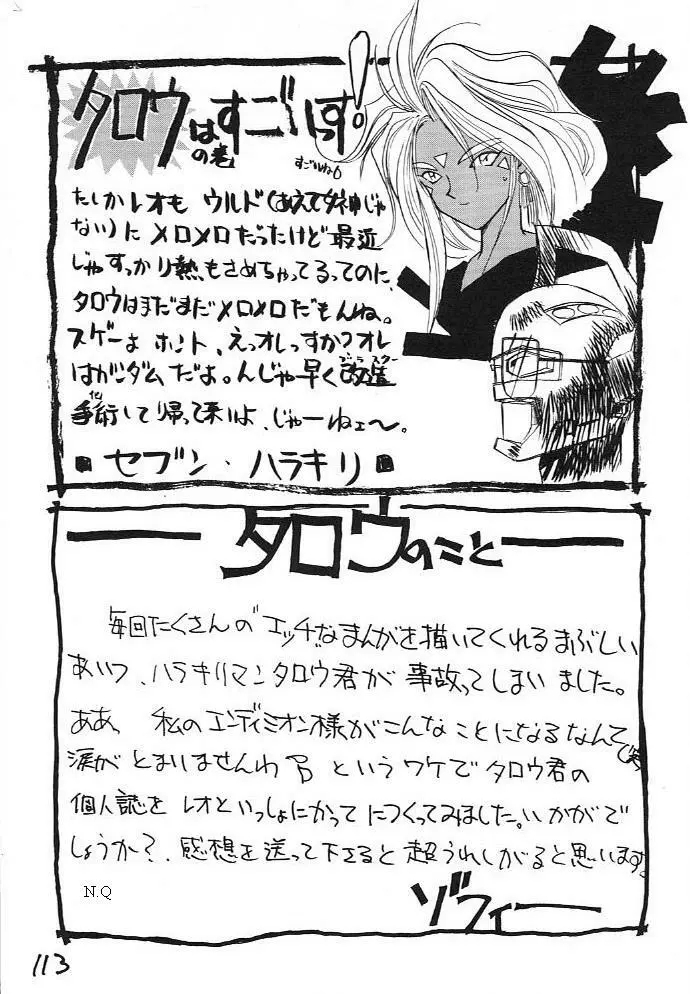 タロウはすごいっす!
の巻
すごいね
たしかレオも ウルド(あえて女神じゃ
ない)に メロメロだったけど 最近
じゃすっかり熱もさめちゃってるってのに、
タロウはまだまだメロメロだもんね。
スゲーよ ホント、えっオレっすか?オレ
はガンダムだよ。んじゃ早く改造
手術して帰って来いよ、じゃーねェ〜。
■セブン・ハラキリ■
タロウのこと
毎回たくさんの"エッチ"なまんがを描いてくれるまぶしい
あいつ、ハラキリマンタロウ君が 事故ってしまいました。
ああ、私のエンディミオン様がこんなことになるなんて
涙が とまりませんわ というワケで タロウ君の
個人誌を レオといっしょにかってにつくってみました。いかがで
しょうか?、感想を送って下さると 超うれしがると思います。
N.Q
ゾフィー
113